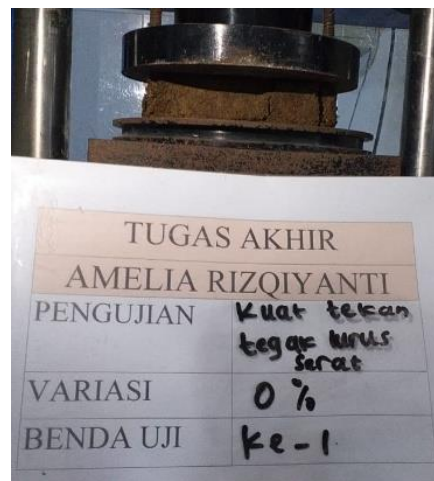 TUGAS AKHIR
AMELIA RIZQIYANTI
PENGUJIAN Kuat tekan
tegak lurus
serat
VARIASI 0 %
BENDA UJI Ke-1